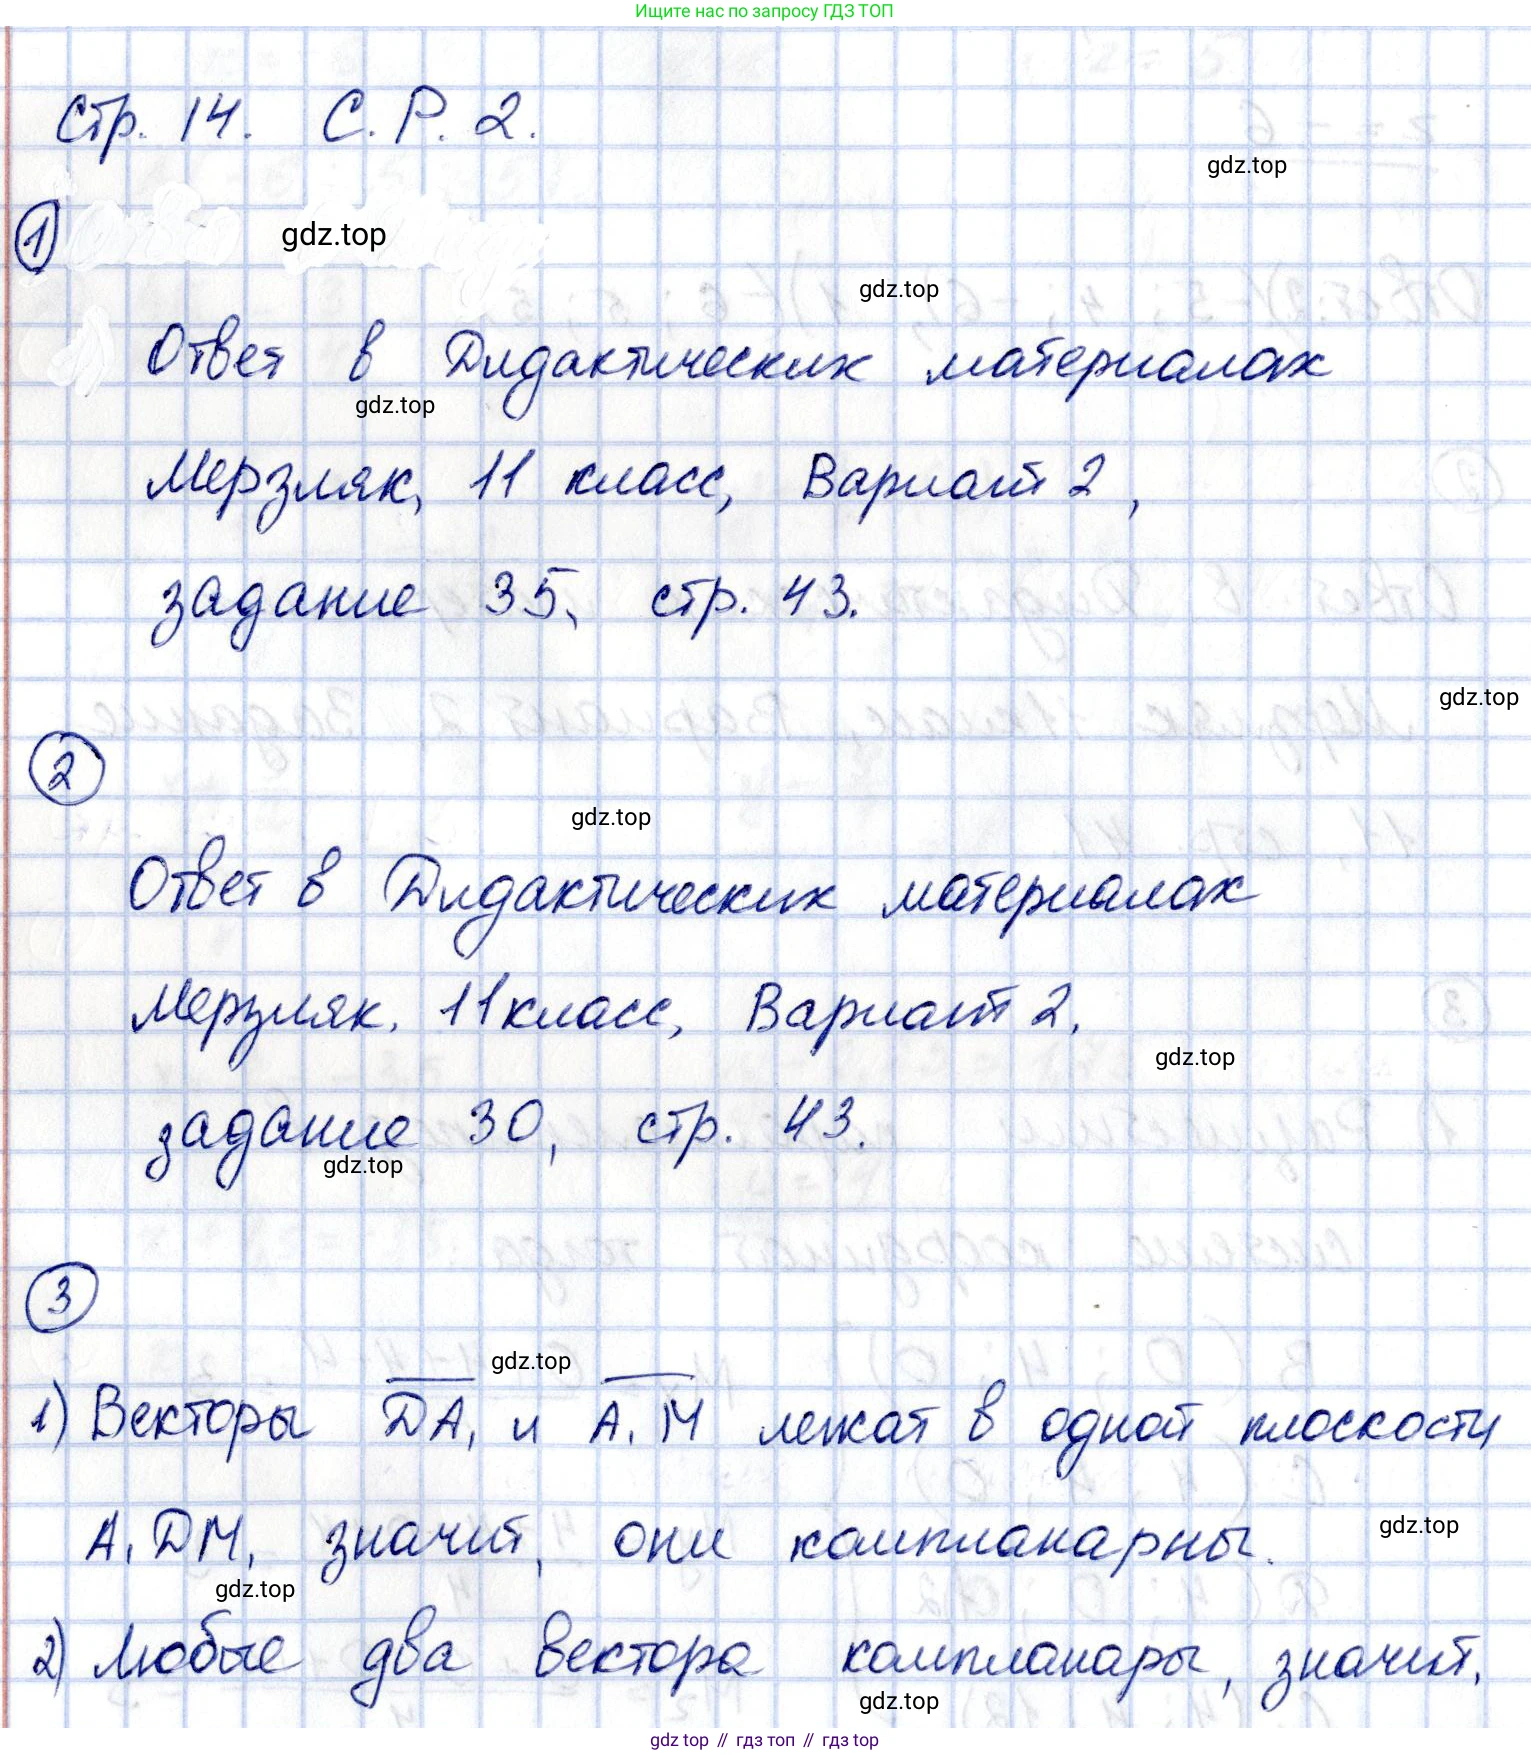 Ищите нас по запросу ГДЗ ТОП
Стр. 14. С. Р. 2.
gdz.top
1 gdz.top
gdz.top
Ответ в Дидактических материалах
gdz.top
Мерзляк, 11 класс, Вариант 2,
задание 35, стр. 43.
gdz.top
2
gdz.top
Ответ в Дидактических материалах
Мерзляк. 11 класс, Вариант 2,
gdz.top
задание 30, стр. 43.
gdz.top
3
gdz.top
1) Векторы DA₁ и A₁M лежат в одной плоскости
A₁DM, значит, они компланарны.
gdz.top
gdz.top
2) Любые два вектора компланары, значит,
gdz.top
gdz top // гдз топ // гдз top